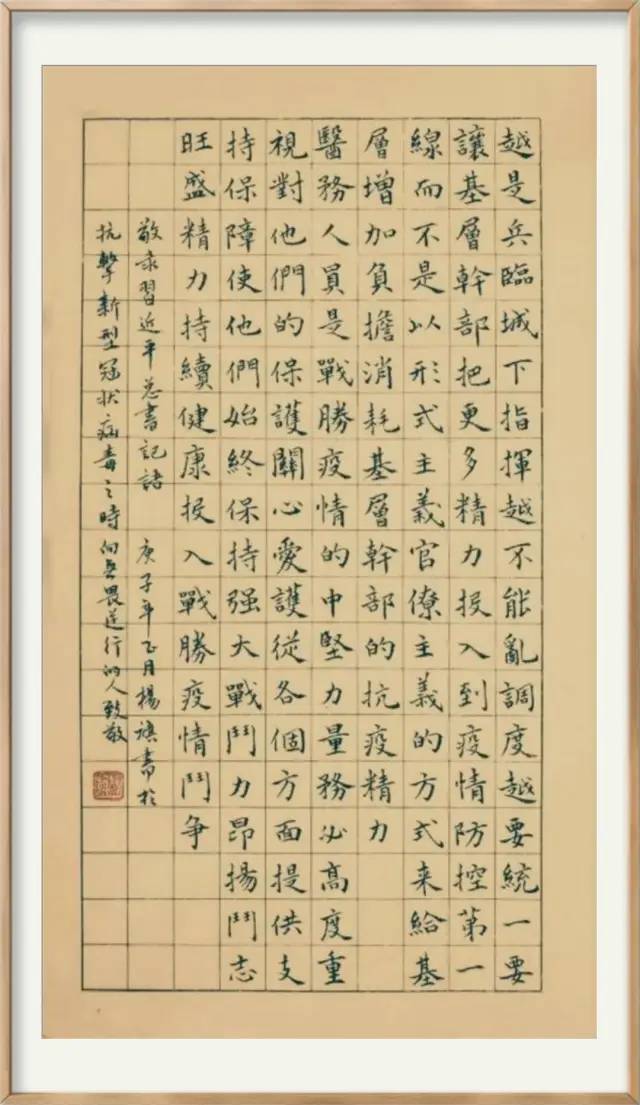 越是兵臨城下指揮越不能亂調度越要統一要
讓基層幹部把更多精力投入到疫情防控第一
線而不是以形式主義官僚主義的方式来給基
層增加負擔消耗基層幹部的抗疫精力
醫務人員是戰勝疫情的中堅力量務必高度重
視對他們的保護關心愛護從各個方面提供支
持保障使他們始終保持强大戰鬥力昂揚鬥志
旺盛精力持續健康投入戰勝疫情鬥争
敬录習近平总書記語 庚子年正月楊書於
抗擊新型冠状病毒之時向無畏逆行的人致敬